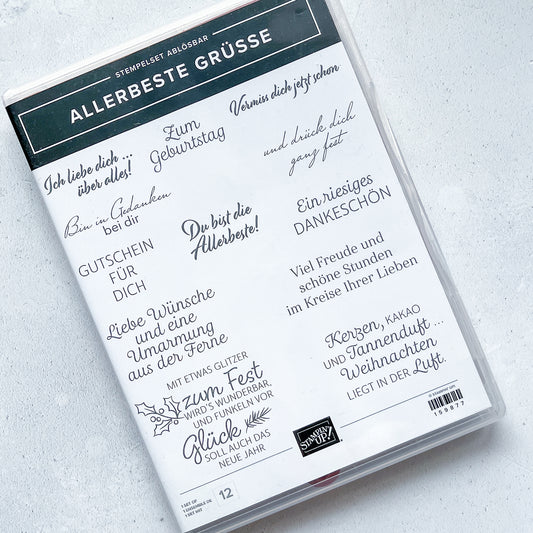 STEMPELSET ABLÖSBAR
ALLERBESTE GRÜSSE
Ich liebe dich ...
über alles!
Zum
Geburtstag
Vermiss dich jetzt schon
und drück dich
ganz fest
Bin in Gedanken
bei dir
Du bist die
Allerbeste!
Ein riesiges
DANKESCHÖN
GUTSCHEIN
FÜR
DICH
Viel Freude und
schöne Stunden
im Kreise Ihrer Lieben
Liebe Wünsche
und eine
Umarmung
aus der Ferne
Kerzen, KAKAO
UND Tannenduft ...
Weihnachten
LIEGT IN DER Luft.
MIT ETWAS GLITZER
zum Fest
WIRD'S WUNDERBAR,
UND FUNKELN VOR
Glück
SOLL AUCH DAS
NEUE JAHR
STAMPIN'
UP!
© STAMPIN' UP!
159877
1 SET OF
1 ENSEMBLE DE
1 SET MIT
12